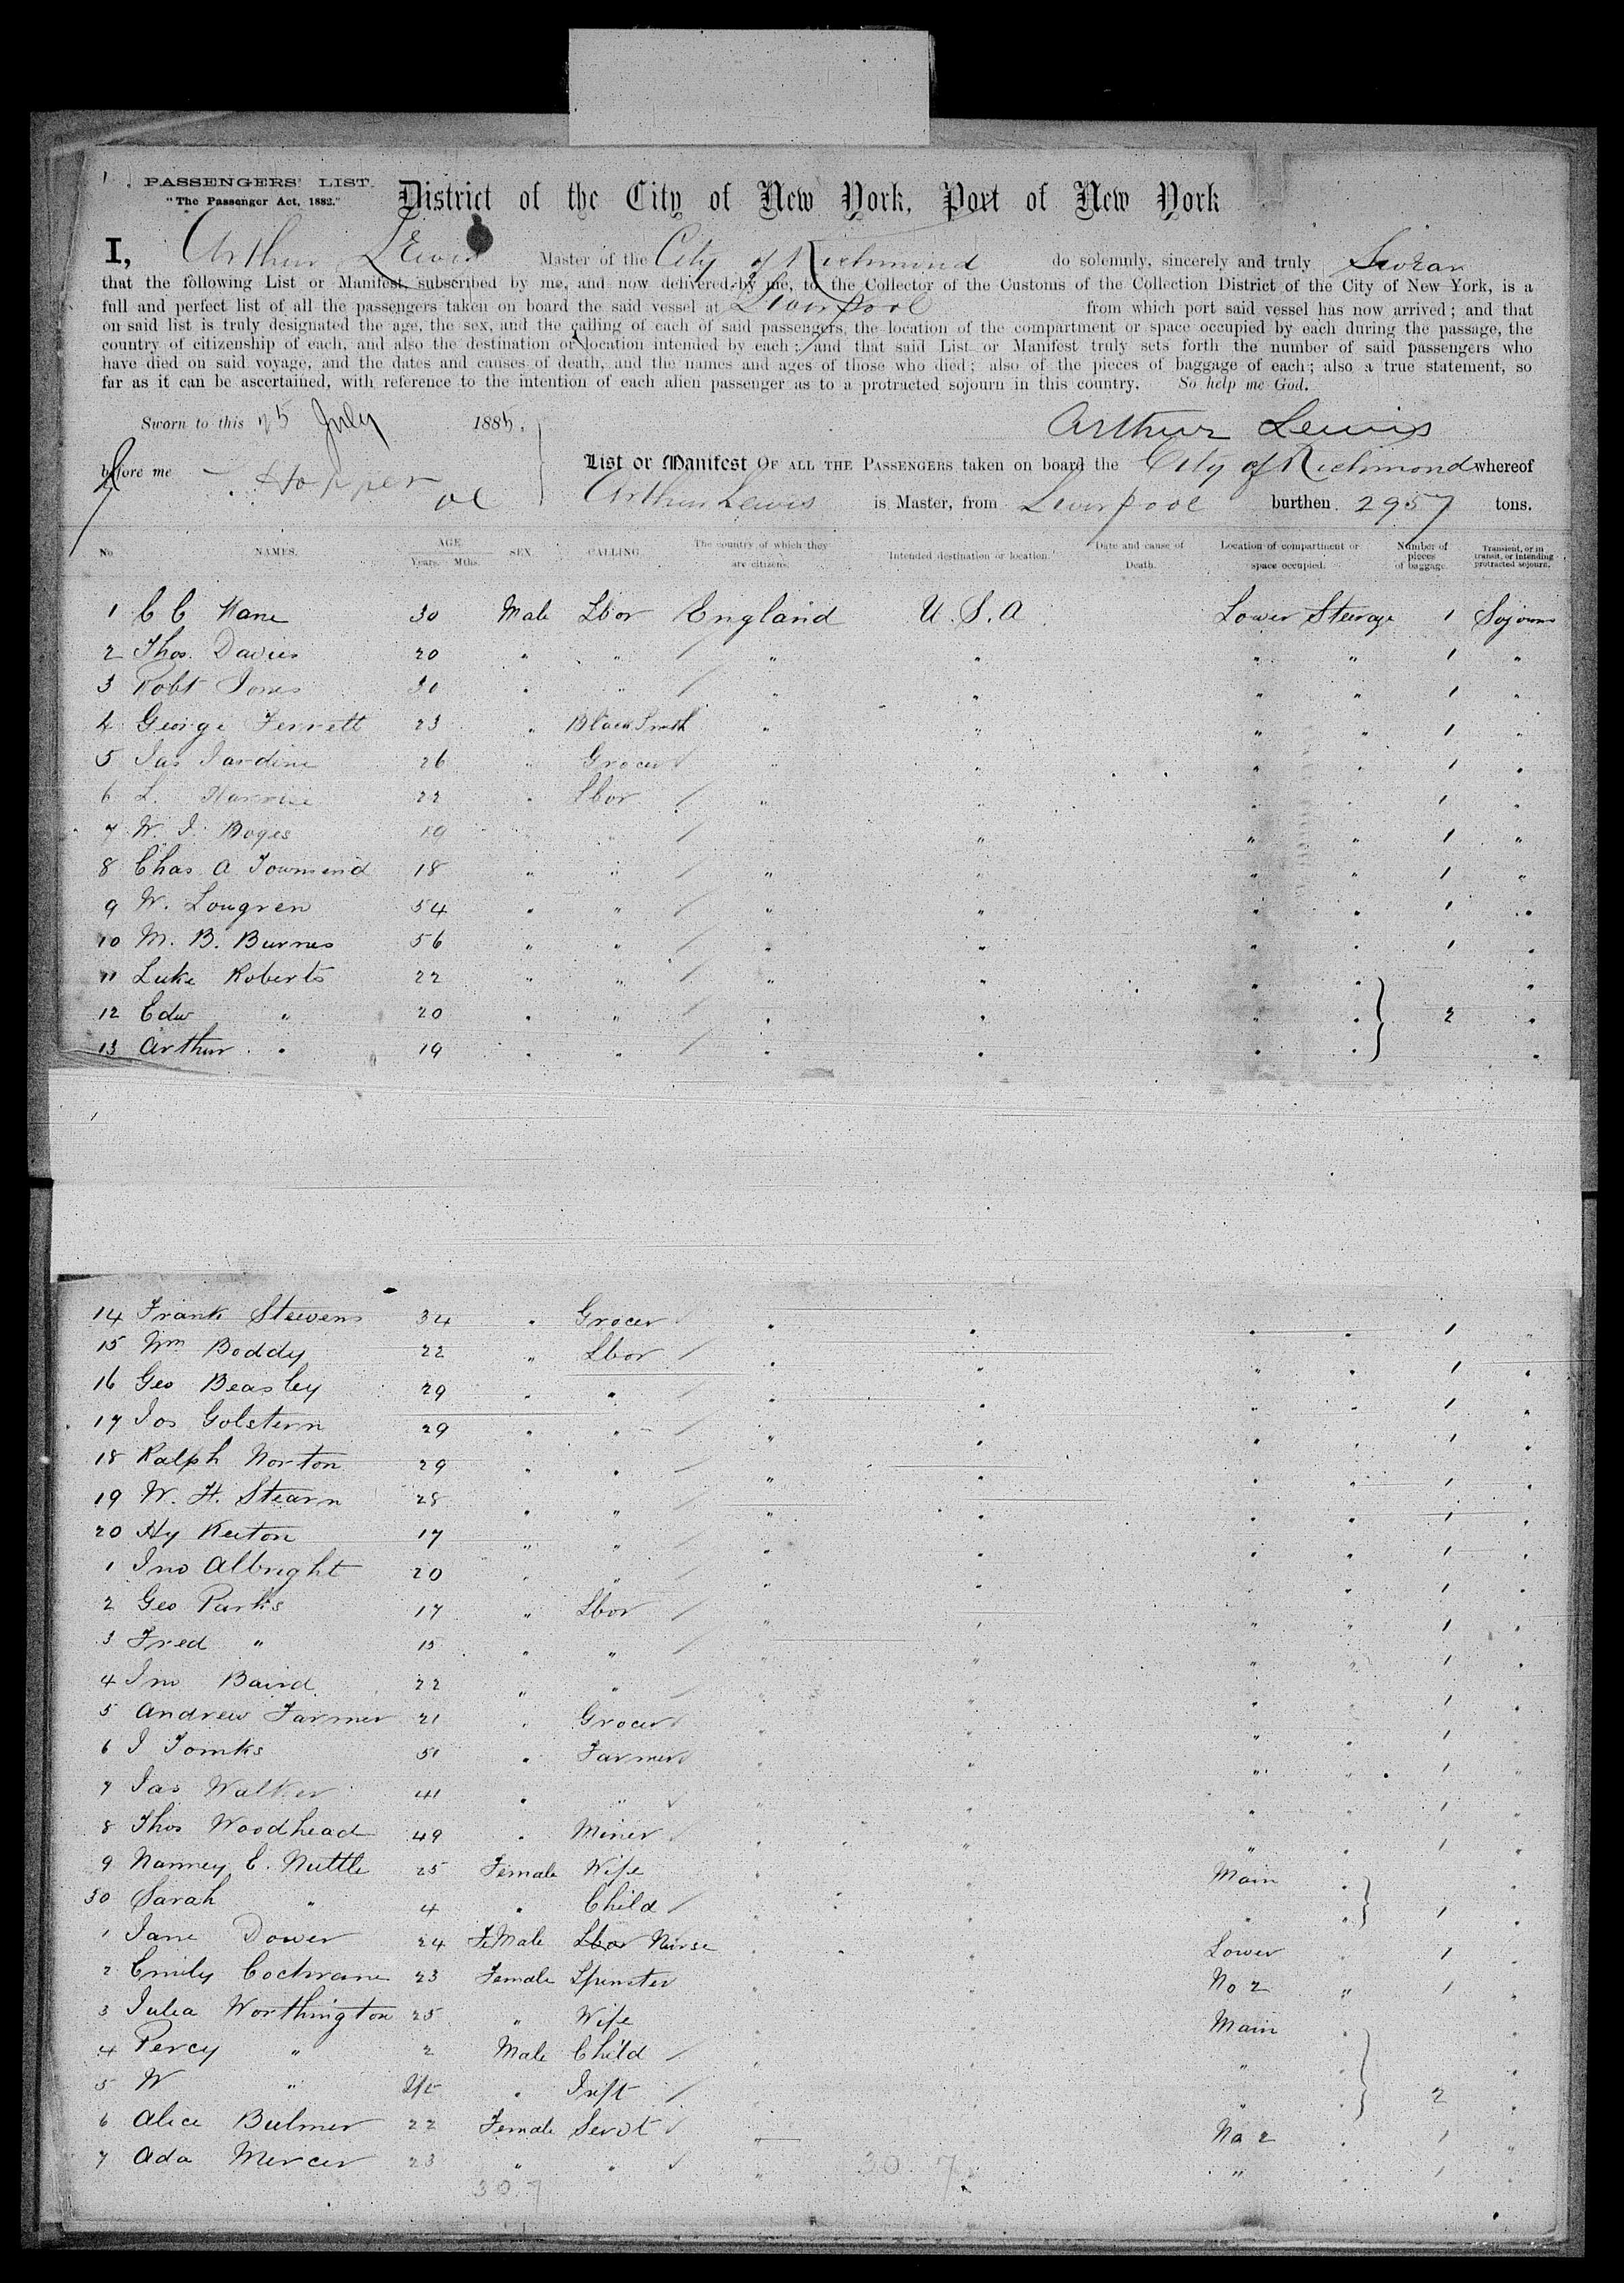 PASSENGERS' LIST.
"The Passenger Act, 1882."
District of the City of New York, Port of New York
I, Arthur Lewis Master of the City of Richmond do solemnly, sincerely and truly Swear
that the following List or Manifest, subscribed by me, and now delivered by me, to the Collector of the Customs of the Collection District of the City of New York, is a
full and perfect list of all the passengers taken on board the said vessel at Liverpool from which port said vessel has now arrived; and that
on said list is truly designated the age, the sex, and the calling of each of said passengers, the location of the compartment or space occupied by each during the passage, the
country of citizenship of each, and also the destination or location intended by each; and that said List or Manifest truly sets forth the number of said passengers who
have died on said voyage, and the dates and causes of death, and the names and ages of those who died; also of the pieces of baggage of each; also a true statement, so
far as it can be ascertained, with reference to the intention of each alien passenger as to a protracted sojourn in this country. So help me God.
Sworn to this 25 July 1885. Arthur Lewis
before me Hopper
List or Manifest OF ALL THE PASSENGERS taken on board the City of Richmond whereof
Arthur Lewis is Master, from Liverpool burthen 2957 tons.
No. NAMES. AGE Years. Mths. SEX. CALLING. The country of which they are citizens. Intended destination or location. Date and cause of Death. Location of compartment or space occupied. Number of pieces of baggage. Transient, or in transit, or intending protracted sojourn.
1 C C Kane 30 Male Lbor England U.S.A. Lower Steerage 1 Sojourn
2 Thos. Davies 20 " " " " " " 1 "
3 Robt Jones 30 " " " " " " 1 "
4 George Ferrett 23 " BlackSmith " " " " 1 "
5 Jas Jardine 26 " Grocer " " " " 1 "
6 L. 22 " Lbor " " " " 1 "
7 W. J. Boges 19 " " " " " " 1 "
8 Chas A Townsend 18 " " " " " " 1 "
9 W. Lougren 54 " " " " " " 1 "
10 M. B. Burnes 56 " " " " " " 1 "
11 Luke Roberts 22 " " " " " " "
12 Edw " 20 " " " " " " 2 "
13 Arthur " 19 " " " " " " "
14 Frank Stevens 34 " Grocer " " " " 1 "
15 Wm Boddy 22 " Lbor " " " " 1 "
16 Geo Beasley 29 " " " " " " 1 "
17 Jos Golstern 29 " " " " " " 1 "
18 Ralph Norton 29 " " " " " " 1 "
19 W. H. Stearn 28 " " " " " " 1 "
20 Hy Keeton 17 " " " " " " 1 "
1 Jno Albright 20 " " " " " " 1 "
2 Geo Parks 17 " Lbor " " " " 1 "
3 Fred " 15 " " " " " " 1 "
4 Jno Baird 22 " " " " " " 1 "
5 Andrew Farmer 21 " Grocer " " " " 1 "
6 J Tomks 51 " Farmer " " " " 1 "
7 Jas Walker 41 " " " " " " 1 "
8 Thos Woodhead 49 " Miner " " " " 1 "
9 Nanney E. Nuttle 25 Female Wife " " Main " "
30 Sarah " 4 " Child " " " " 1 "
1 Jane Dower 24 FeMale Lbor Nurse " " Lower " 1 "
2 Emily Cochrane 23 Female Spinster " " No 2 " 1 "
3 Julia Worthington 25 " Wife " " Main " "
4 Percy " 2 Male Child " " " " "
5 W " " Inft " " " " 2 "
6 Alice Bulmer 22 Female Servt " " No 2 " 1 "
7 Ada Mercer 23 " " " " " " 1 "
30.7
30.7